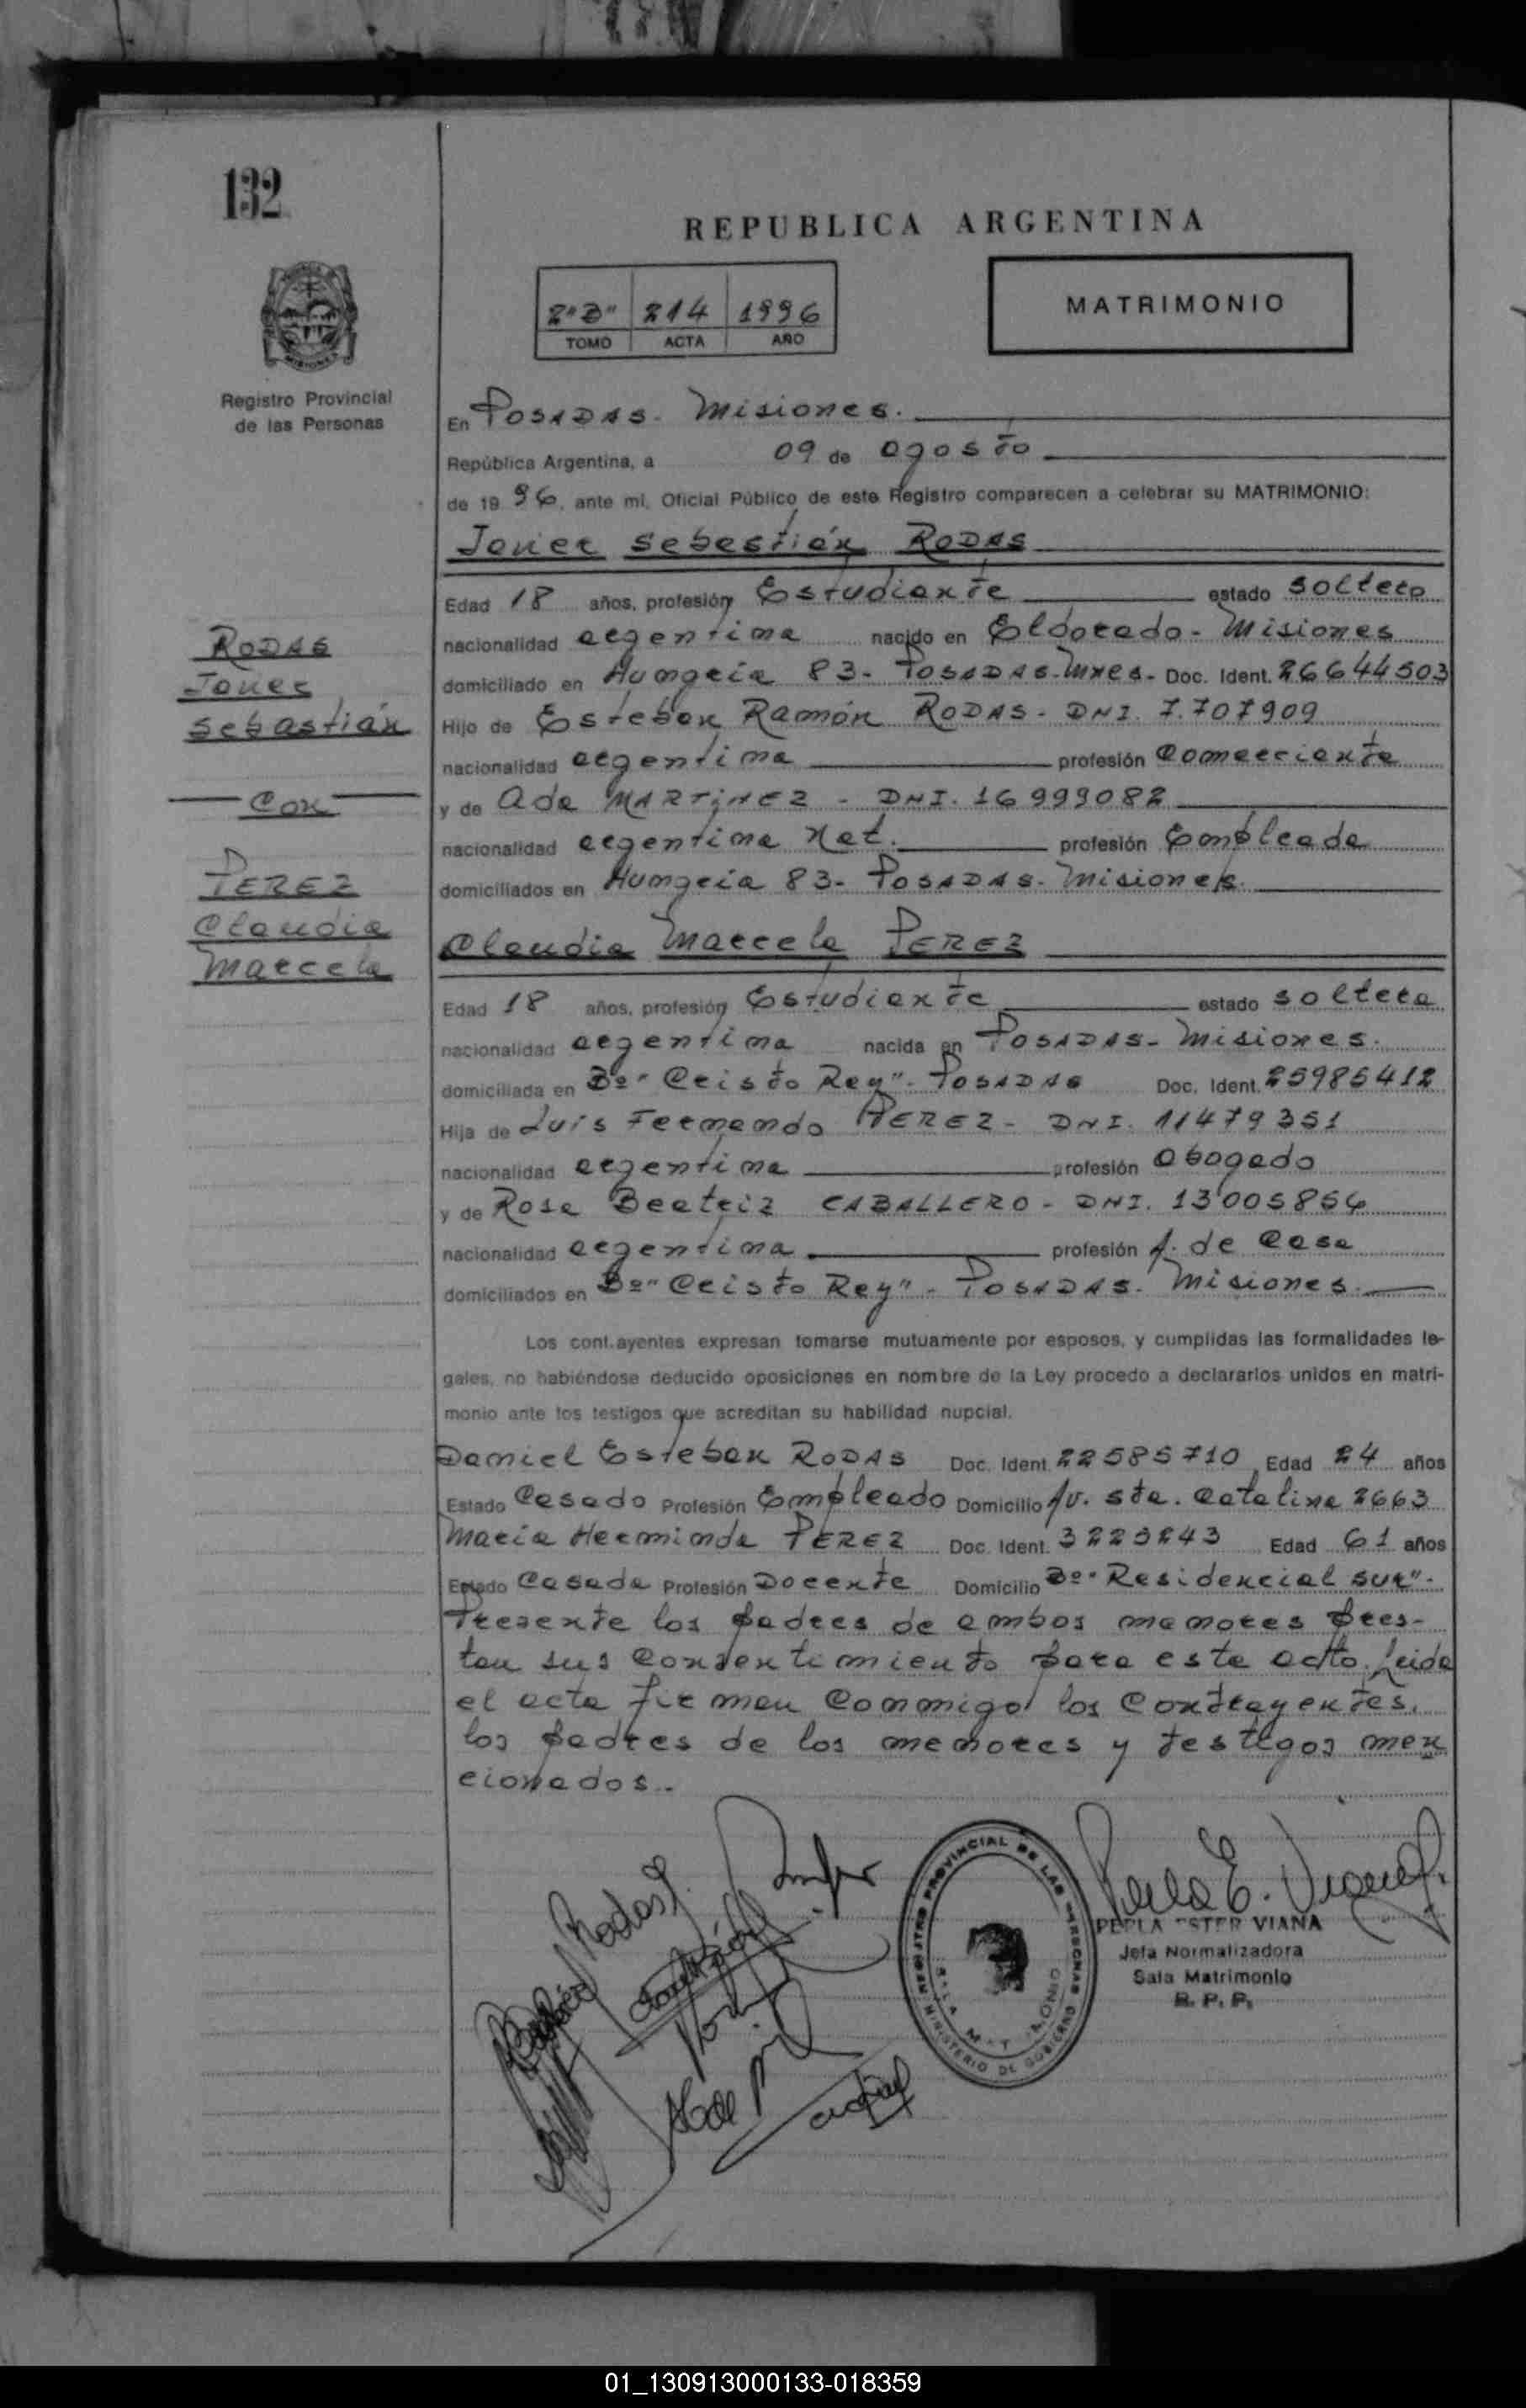 132
REPUBLICA ARGENTINA
2"B" 214 1996
TOMO ACTA AÑO
MATRIMONIO
Registro Provincial
de las Personas
En POSADAS - Misiones.
República Argentina, a 09 de agosto
de 19 96, ante mí, Oficial Público de este Registro comparecen a celebrar su MATRIMONIO:
Javier Sebastián RODAS
Edad 18 años, profesión Estudiante estado soltero
nacionalidad argentina nacido en Eldorado - Misiones
domiciliado en Hungría 83 - POSADAS - Mnes - Doc. Ident. 26644503
Hijo de Esteban Ramón RODAS - DNI. 7.707909
nacionalidad argentina profesión Comerciante
y de Ada MARTINEZ - DNI. 16999082
nacionalidad argentina Nat. profesión Empleada
domiciliados en Hungría 83 - POSADAS - Misiones.
RODAS
Javier
Sebastián
Con
PEREZ
Claudia
Marcela
Claudia Marcela PEREZ
Edad 18 años, profesión Estudiante estado soltera
nacionalidad argentina nacida en POSADAS - Misiones.
domiciliada en Bº "Cristo Rey" - POSADAS Doc. Ident. 25985412
Hija de Luis Fernando PEREZ - DNI. 11479351
nacionalidad argentina profesión Abogado
y de Rosa Beatriz CABALLERO - DNI. 13005856
nacionalidad argentina profesión A. de Casa
domiciliados en Bº "Cristo Rey" - POSADAS - Misiones.
Los cont.ayentes expresan tomarse mutuamente por esposos, y cumplidas las formalidades le-
gales, no habiéndose deducido oposiciones en nombre de la Ley procedo a declararlos unidos en matri-
monio ante los testigos que acreditan su habilidad nupcial.
Daniel Esteban RODAS Doc. Ident. 22585710 Edad 24 años
Estado Casado Profesión Empleado Domicilio Av. Sta. Catalina 2663
María Herminda PEREZ Doc. Ident. 3223243 Edad 61 años
Estado Casada Profesión Docente Domicilio Bº "Residencial Sur".
Presente los padres de ambos menores pres-
tan sus consentimiento para este acto. Leida
el acta firman conmigo los contrayentes,
los padres de los menores y testigos men
cionados.-
REGISTRO PROVINCIAL DE LAS PERSONAS
SALA MATRIMONIO
MINISTERIO DE GOBIERNO
Perla E. Viana
PERLA ESTER VIANA
Jefa Normalizadora
Sala Matrimonio
R. P. P.
01_130913000133-018359